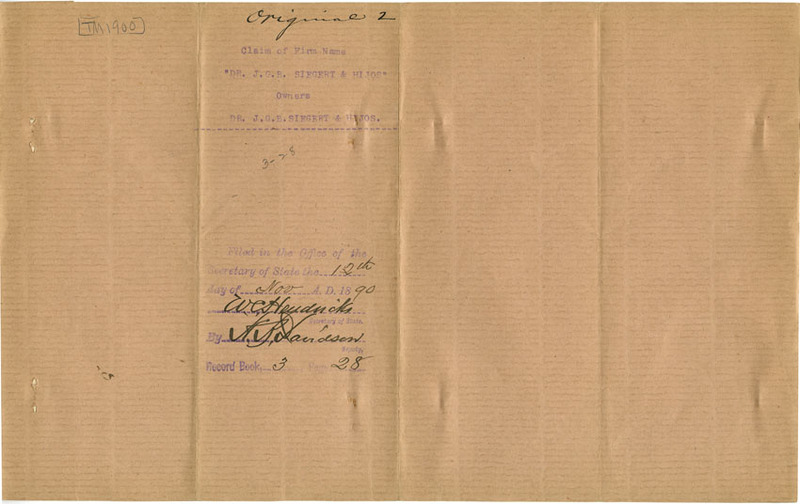 TM1900
Original 2
Claim of Firm Name
"DR. J.G.B. SIEGERT & HIJOS"
Owners
DR. J.G.B.SIEGERT & HIJOS.
3-28
Filed in the Office of the
Secretary of State the 12th
day of Nov A. D. 1890
W.C. Hendricks
Secretary of State.
By A. S. Davidson
Deputy.
Record Book, 3 Page 28